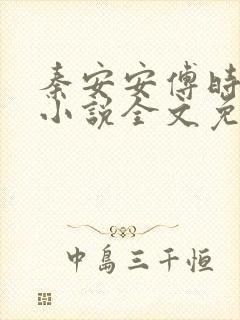 秦安安傅时
小说全文免
中島三千恒